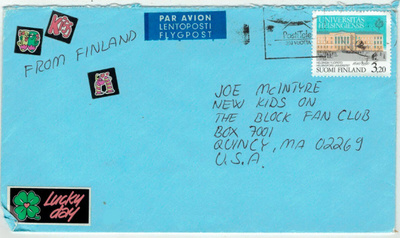 PAR AVION
LENTOPOSTI
FLYGPOST
UNIVERSITAS
HELSINGIENSIS
SUOMI FINLAND
3,20
FROM FINLAND
JOE McINTYRE
NEW KIDS ON
THE BLOCK FAN CLUB
BOX 7001
QUINCY, MA 02269
U.S.A.
Lucky
day